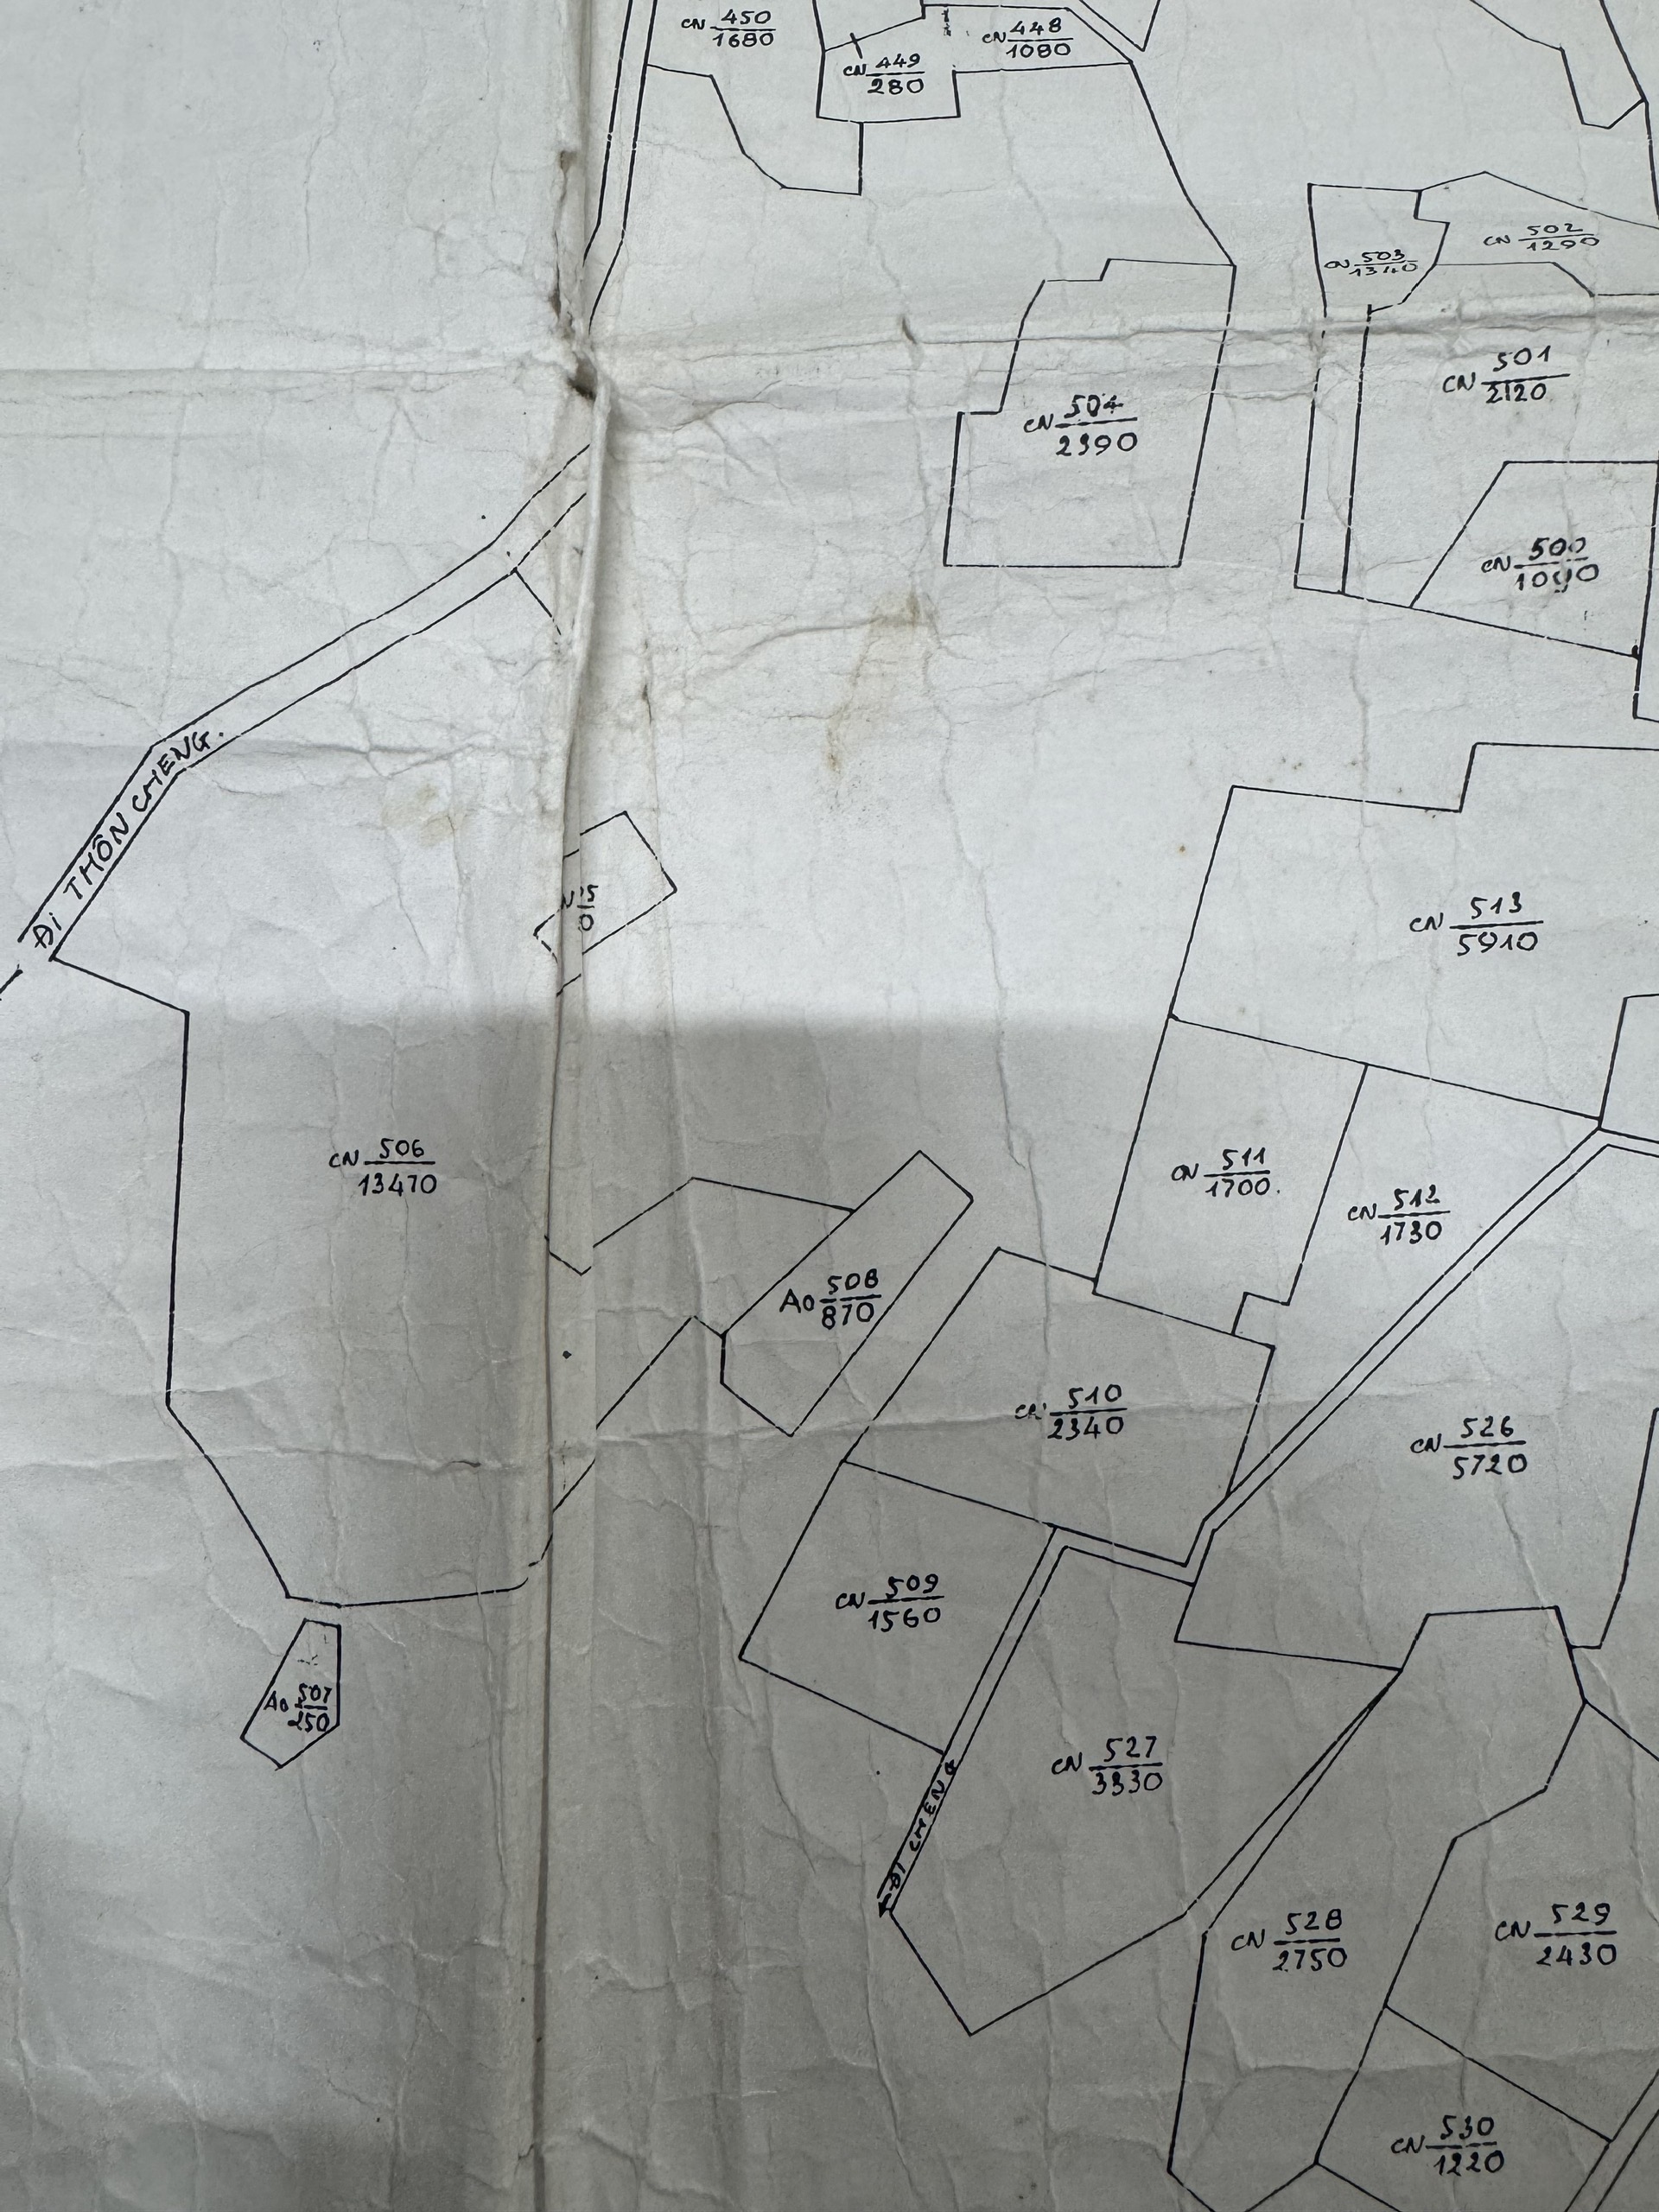 CN 450
1680
CN 448
1080
CN 449
280
CN 502
1290
CN 503
1340
CN 501
2120
CN 504
2390
CN 500
1090
ĐI THÔN CHENG.
CN 513
5910
CN 506
13470
CN 511
1700.
CN 512
1730
AO 508
870
CN 510
2340
CN 526
5720
CN 509
1560
AO 507
250
CN 527
3330
ĐI CHENG
CN 528
2750
CN 529
2430
CN 530
1220